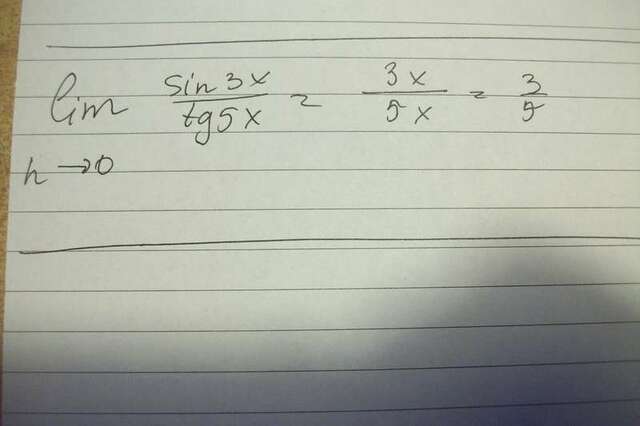 lim sin 3x / tg5x = 3x / 5x = 3 / 5
h → 0